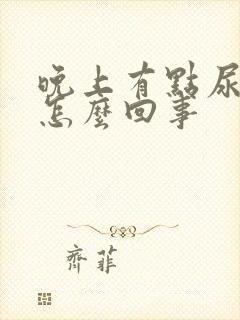 晚上有點尿
怎麼回事
齊菲